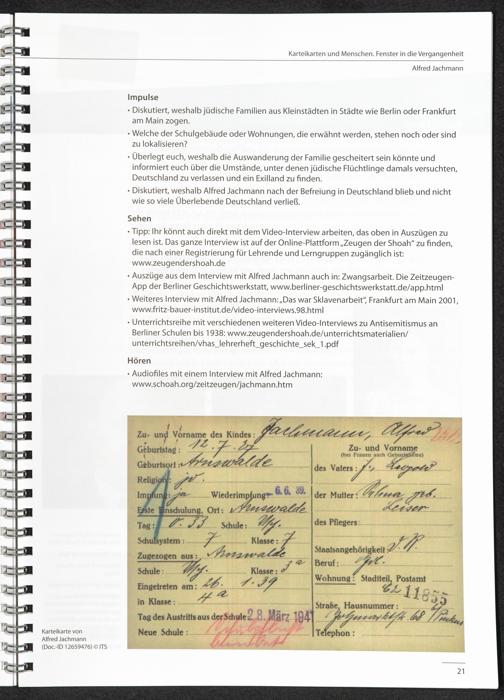 Karteikarten und Menschen. Fenster in die Vergangenheit
Alfred Jachmann
Impulse
• Diskutiert, weshalb jüdische Familien aus Kleinstädten in Städte wie Berlin oder Frankfurt
am Main zogen.
• Welche der Schulgebäude oder Wohnungen, die erwähnt werden, stehen noch oder sind
zu lokalisieren?
• Überlegt euch, weshalb die Auswanderung der Familie gescheitert sein könnte und
informiert euch über die Umstände, unter denen jüdische Flüchtlinge damals versuchten,
Deutschland zu verlassen und ein Exilland zu finden.
• Diskutiert, weshalb Alfred Jachmann nach der Befreiung in Deutschland blieb und nicht
wie so viele Überlebende Deutschland verließ.
Sehen
• Tipp: Ihr könnt auch direkt mit dem Video-Interview arbeiten, das oben in Auszügen zu
lesen ist. Das ganze Interview ist auf der Online-Plattform „Zeugen der Shoah" zu finden,
die nach einer Registrierung für Lehrende und Lerngruppen zugänglich ist:
www.zeugendershoah.de
• Auszüge aus dem Interview mit Alfred Jachmann auch in: Zwangsarbeit. Die Zeitzeugen-
App der Berliner Geschichtswerkstatt, www.berliner-geschichtswerkstatt.de/app.html
• Weiteres Interview mit Alfred Jachmann: „Das war Sklavenarbeit", Frankfurt am Main 2001,
www.fritz-bauer-institut.de/video-interviews.98.html
• Unterrichtsreihe mit verschiedenen weiteren Video-Interviews zu Antisemitismus an
Berliner Schulen bis 1938: www.zeugendershoah.de/unterrichtsmaterialien/
unterrichtsreihen/vhas_lehrerheft_geschichte_sek_1.pdf
Hören
• Audiofiles mit einem Interview mit Alfred Jachmann:
www.schoah.org/zeitzeugen/jachmann.htm
Zu- und Vorname des Kindes: Jachmann, Alfred
Geburtstag: 12. 7. 27
Geburtsort: Arnswalde
Religion: jd.
Impfung: ja Wiederimpfung: 6.6.39.
Erste Einschulung. Ort: Arnswalde
Tag: Schule:
Schulsystem: 7 Klasse: 7
Zugezogen aus: Arnswalde
Schule: Klasse: 3a
Eingetreten am: 26. 1. 39
in Klasse: 4a
Tag des Austritts aus der Schule 28. März 194
Neue Schule:
Zu- und Vorname
(bei Frauen auch Geburtsname)
des Vaters: J, Leopold
der Mutter: geb.
Leiser
des Pflegers:
Staatsangehörigkeit D.R.
Beruf:
Wohnung: Stadtteil, Postamt
C2 11855
Straße, Hausnummer:
Telephon:
Karteikarte von
Alfred Jachmann
(Doc.-ID 12659476) © ITS
21